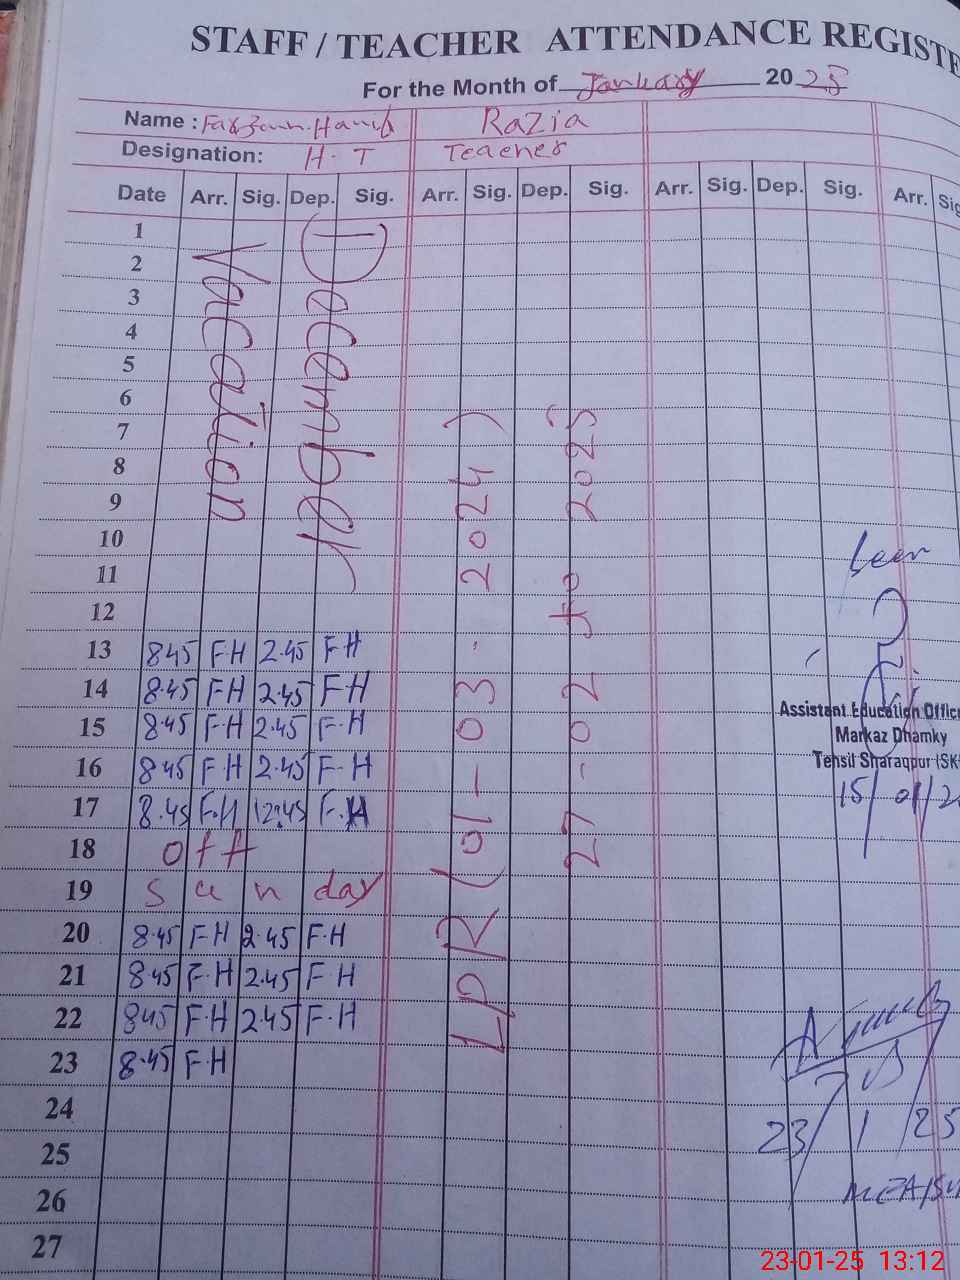 STAFF / TEACHER ATTENDANCE REGISTE
For the Month of January 2025
Name : Farzana Hanif Razia
Designation: H.T Teacher
Date Arr. Sig. Dep. Sig. Arr. Sig. Dep. Sig. Arr. Sig. Dep. Sig. Arr. Sig
December
Vacation
LPR (01-03-2024)
27-02 to 2025
1
2
3
4
5
6
7
8
9
10
11
12
13 8.45 F.H 2.45 F.H
14 8.45 F.H 2.45 F.H
15 8.45 F.H 2.45 F.H
16 8.45 F.H 2.45 F.H
17 8.45 F.H 12:45 F.H
18 off
19 Sunday
20 8.45 F.H 2.45 F.H
21 8.45 F.H 2.45 F.H
22 8.45 F.H 2.45 F.H
23 8.45 F.H
24
25
26
27
Seen
Assistant Education Offic
Markaz Dhamky
Tehsil Sharaqpur (SK
15/01/2
23/1/25
23-01-25 13:12